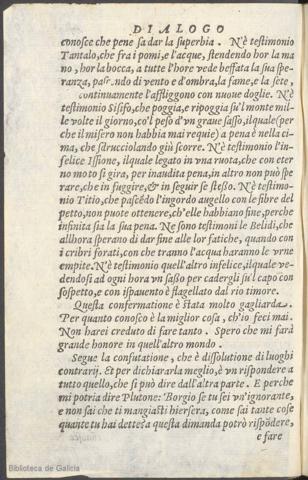 DIALOGO
conosce che pene sa dar la superbia. N'è testimonio
Tantalo, che fra i pomi, e l'acque, stendendo hor la ma
no, hor la bocca, a tutte l'hore vede beffata la sua spe-
ranza, pascendo di vento e d'ombra, la fame, e la sete,
continuamente l'affliggono con nuoue doglie. N'è
testimonio Sisifo, che poggia, e ripoggia su'l monte mil-
le volte il giorno, co'l peso d'vn graue sasso, ilquale (per
che il misero non habbia mai requie) a pena è nella ci-
ma, che sdrucciolando già scorre. N'è testimonio l'in-
felice Issione, ilquale legato in vna ruota, che con eter
no moto si gira, per inaudita pena, in altro non può spe
rare, che in fuggire, & in seguir se stesso. N'è testimo-
nio Titio, che pascēdo l'ingordo augello con le fibre del
petto, non puote ottenere, ch'elle habbiano fine, perche
infinita sia la sua pena. Ne sono testimoni le Belidi, che
allhora sperano di dar fine alle lor fatiche, quando con
i cribri forati, con che tranno l'acqua haranno le vrne
empite. N'è testimonio quell'altro infelice, ilquale ve-
dendosi ad ogni hora vn sasso per cadergli su'l capo con
sospetto, e con ispauento è flagellato dal rio timore.
Questa confermatione è stata molto gagliarda.
Per quanto conosco è la miglior cosa, ch'io feci mai.
Non harei creduto di fare tanto. Spero che mi farà
grande honore in quell'altro mondo.
Segue la confutatione, che è dissolutione di luoghi
contrarij. Et per dichiararla meglio, è vn rispondere a
tutto quello, che si può dire dall'altra parte. E perche
mi potria dire Plutone: Borgio se tu sei vn'ignorante,
e non sai che ti mangiasti hiersera, come sai tante cose
quante tu hai dette? a questa dimanda potrò rispōdere,
e fare
Biblioteca de Galicia